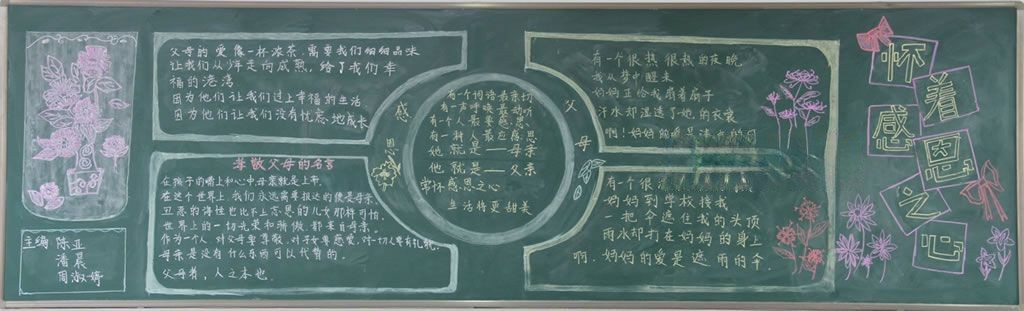 父母的爱像一杯浓茶,需要我们细细品味
让我们从少年走向成熟,给了我们幸
福的港湾
因为他们让我们过上幸福的生活
因为他们让我们没有忧虑地成长
尊敬父母的名言
在孩子的嘴上和心中母亲就是上帝
在这个世界上,我们永远需要报达的像是母亲
丑恶的海怪也比不上忘恩的儿女那样可怕
世界上的一切光荣和骄傲,都来自母亲
作为一个人,对父母要尊敬,对子女要慈爱,对一切人要有礼貌
母亲是没有什么东西可以代替的
父母者,人之本也
主编 陈亚
潘晨
周淑婷
感
恩
父
母
有一个词语最亲切
有一声呼唤最动听
有一个人最要感恩
有一种人最应感恩
他就是——母亲
他就是——父亲
常怀感恩之心
生活将更甜美
有一个很热很热的夜晚
我从梦中醒来
妈妈正给我扇着扇子
汗水却湿透了她的衣裳
啊!妈妈的爱是清凉的风
有一个很
妈妈到学校接我
一把伞遮住我的头顶
雨水却打在妈妈的身上
啊,妈妈的爱是遮雨的伞
怀着感恩之心